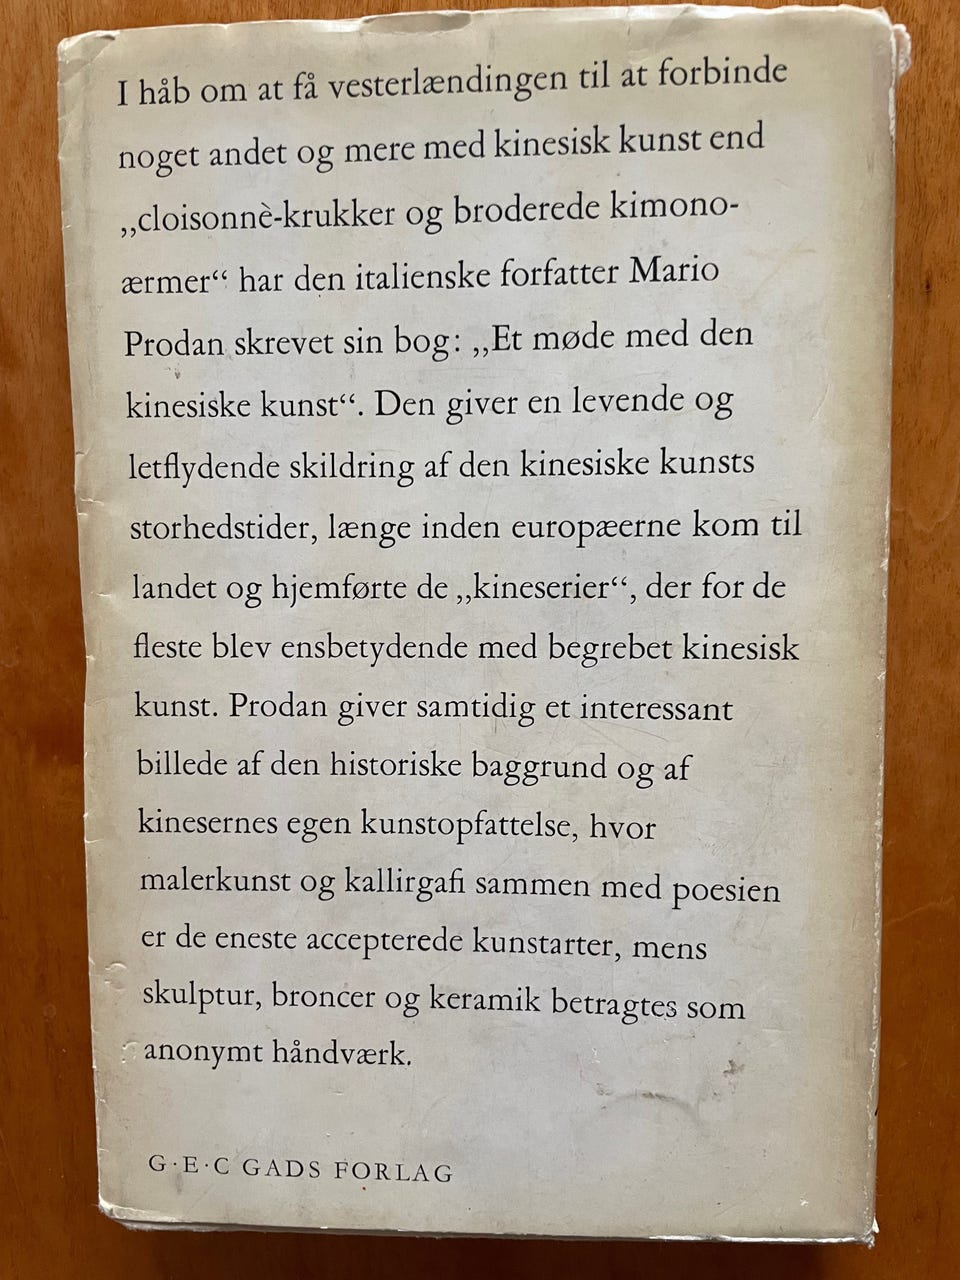 I håb om at få vesterlændingen til at forbinde
noget andet og mere med kinesisk kunst end
„cloisonnè-krukker og broderede kimono-
ærmer“ har den italienske forfatter Mario
Prodan skrevet sin bog: „Et møde med den
kinesiske kunst“. Den giver en levende og
letflydende skildring af den kinesiske kunsts
storhedstider, længe inden europæerne kom til
landet og hjemførte de „kineserier“, der for de
fleste blev ensbetydende med begrebet kinesisk
kunst. Prodan giver samtidig et interessant
billede af den historiske baggrund og af
kinesernes egen kunstopfattelse, hvor
malerkunst og kallirgafi sammen med poesien
er de eneste accepterede kunstarter, mens
skulptur, broncer og keramik betragtes som
anonymt håndværk.
G·E·C GADS FORLAG